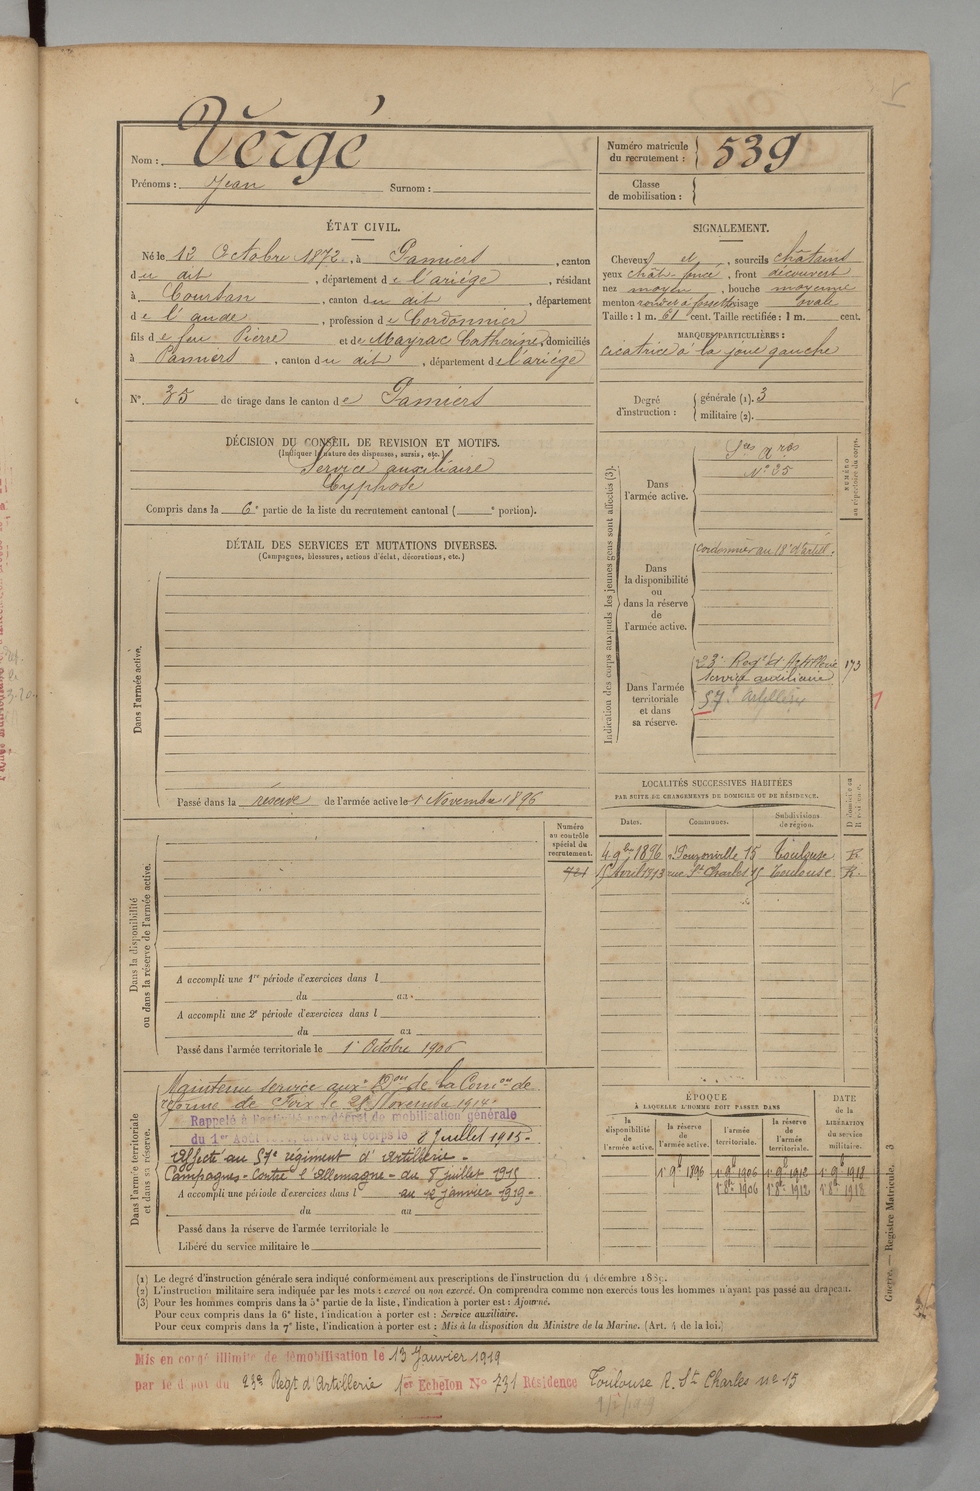 Nom : Vergé
Prénoms : Jean Surnom :
Numéro matricule du recrutement : 539
Classe de mobilisation :
ÉTAT CIVIL.
Né le 12 Octobre 1872, à Pamiers, canton
du dit, département de l'ariége, résidant
à Coursan, canton du dit, département
de l'aude, profession de Cordonnier
fils de feu Pierre et de Mayrac Catherine, domiciliés
à Pamiers, canton du dit, département de l'ariége
N°. 35 de tirage dans le canton de Pamiers
SIGNALEMENT.
Cheveux et, sourcils châtains
yeux chât. foncé, front découvert
nez moyen, bouche moyenne
menton rond et à fossette visage ovale
Taille : 1 m. 61 cent. Taille rectifiée : 1 m. cent.
MARQUES PARTICULIÈRES :
cicatrice à la joue gauche
Degré d'instruction : générale (1). 3
militaire (2).
DÉCISION DU CONSEIL DE REVISION ET MOTIFS.
(Indiquer la nature des dispenses, sursis, etc.)
Service auxiliaire
Cyphose
Compris dans la 6e partie de la liste du recrutement cantonal ( e portion).
DÉTAIL DES SERVICES ET MUTATIONS DIVERSES.
(Campagnes, blessures, actions d'éclat, décorations, etc.)
Dans l'armée active.
Passé dans la réserve de l'armée active le 1 Novembre 1896
Indication des corps auxquels les jeunes gens sont affectés (3).
NUMÉRO au répertoire du corps.
Dans l'armée active.
N° 35
Dans la disponibilité ou dans la réserve de l'armée active.
Cordonnier au 18e d'artill.
Dans l'armée territoriale et dans sa réserve.
23e Regt d'Artillerie 173
Service auxiliaire
57e Artillerie
LOCALITÉS SUCCESSIVES HABITÉES
PAR SUITE DE CHANGEMENTS DE DOMICILE OU DE RÉSIDENCE.
Dates. Communes. Subdivisions de région. D domicile ou R résidence.
4 9bre 1896 15 Toulouse R
15 Avril 1913 rue St Charles 15 Toulouse R.
Dans la disponibilité ou dans la réserve de l'armée active.
Numéro au contrôle spécial du recrutement.
A accompli une 1re période d'exercices dans l
du au
A accompli une 2e période d'exercices dans l
du au
Passé dans l'armée territoriale le 1 Octobre 1906
Dans l'armée territoriale et dans sa réserve.
Maintenu service auxre Don de la Comon de
réforme de Foix le 25 Novembre 1914.
Rappelé à l'activité par décret de mobilisation générale
du 1er Août 1914, arrivé au corps le 8 Juillet 1915.
Affecté au 57e régiment d'Artillerie.
Campagnes - Contre l'Allemagne - du 8 juillet 1915
A accompli une période d'exercices dans l au 12 janvier 1919.
du au
Passé dans la réserve de l'armée territoriale le
Libéré du service militaire le
ÉPOQUE
À LAQUELLE L'HOMME DOIT PASSER DANS
la disponibilité de l'armée active. la réserve de l'armée active. l'armée territoriale. la réserve de l'armée territoriale.
DATE de la LIBÉRATION du service militaire.
1er 9b 1896 1er 9b 1906 1er 9b 1912 1er 9b 1918
1er 8bre 1906 1er 8bre 1912 1er 8bre 1918
Guerre. — Registre Matricule. 3
(1) Le degré d'instruction générale sera indiqué conformément aux prescriptions de l'instruction du 4 décembre 1889.
(2) L'instruction militaire sera indiquée par les mots : exercé ou non exercé. On comprendra comme non exercés tous les hommes n'ayant pas passé au drapeau.
(3) Pour les hommes compris dans la 5e partie de la liste, l'indication à porter est : Ajourné.
Pour ceux compris dans la 6e liste, l'indication à porter est : Service auxiliaire.
Pour ceux compris dans la 7e liste, l'indication à porter est : Mis à la disposition du Ministre de la Marine. (Art. 4 de la loi.)
Mis en congé illimité de démobilisation le 13 Janvier 1919
par le dépôt du 23e Regt d'Artillerie 1er Echelon N° 731 Résidence Toulouse R. St Charles no 15